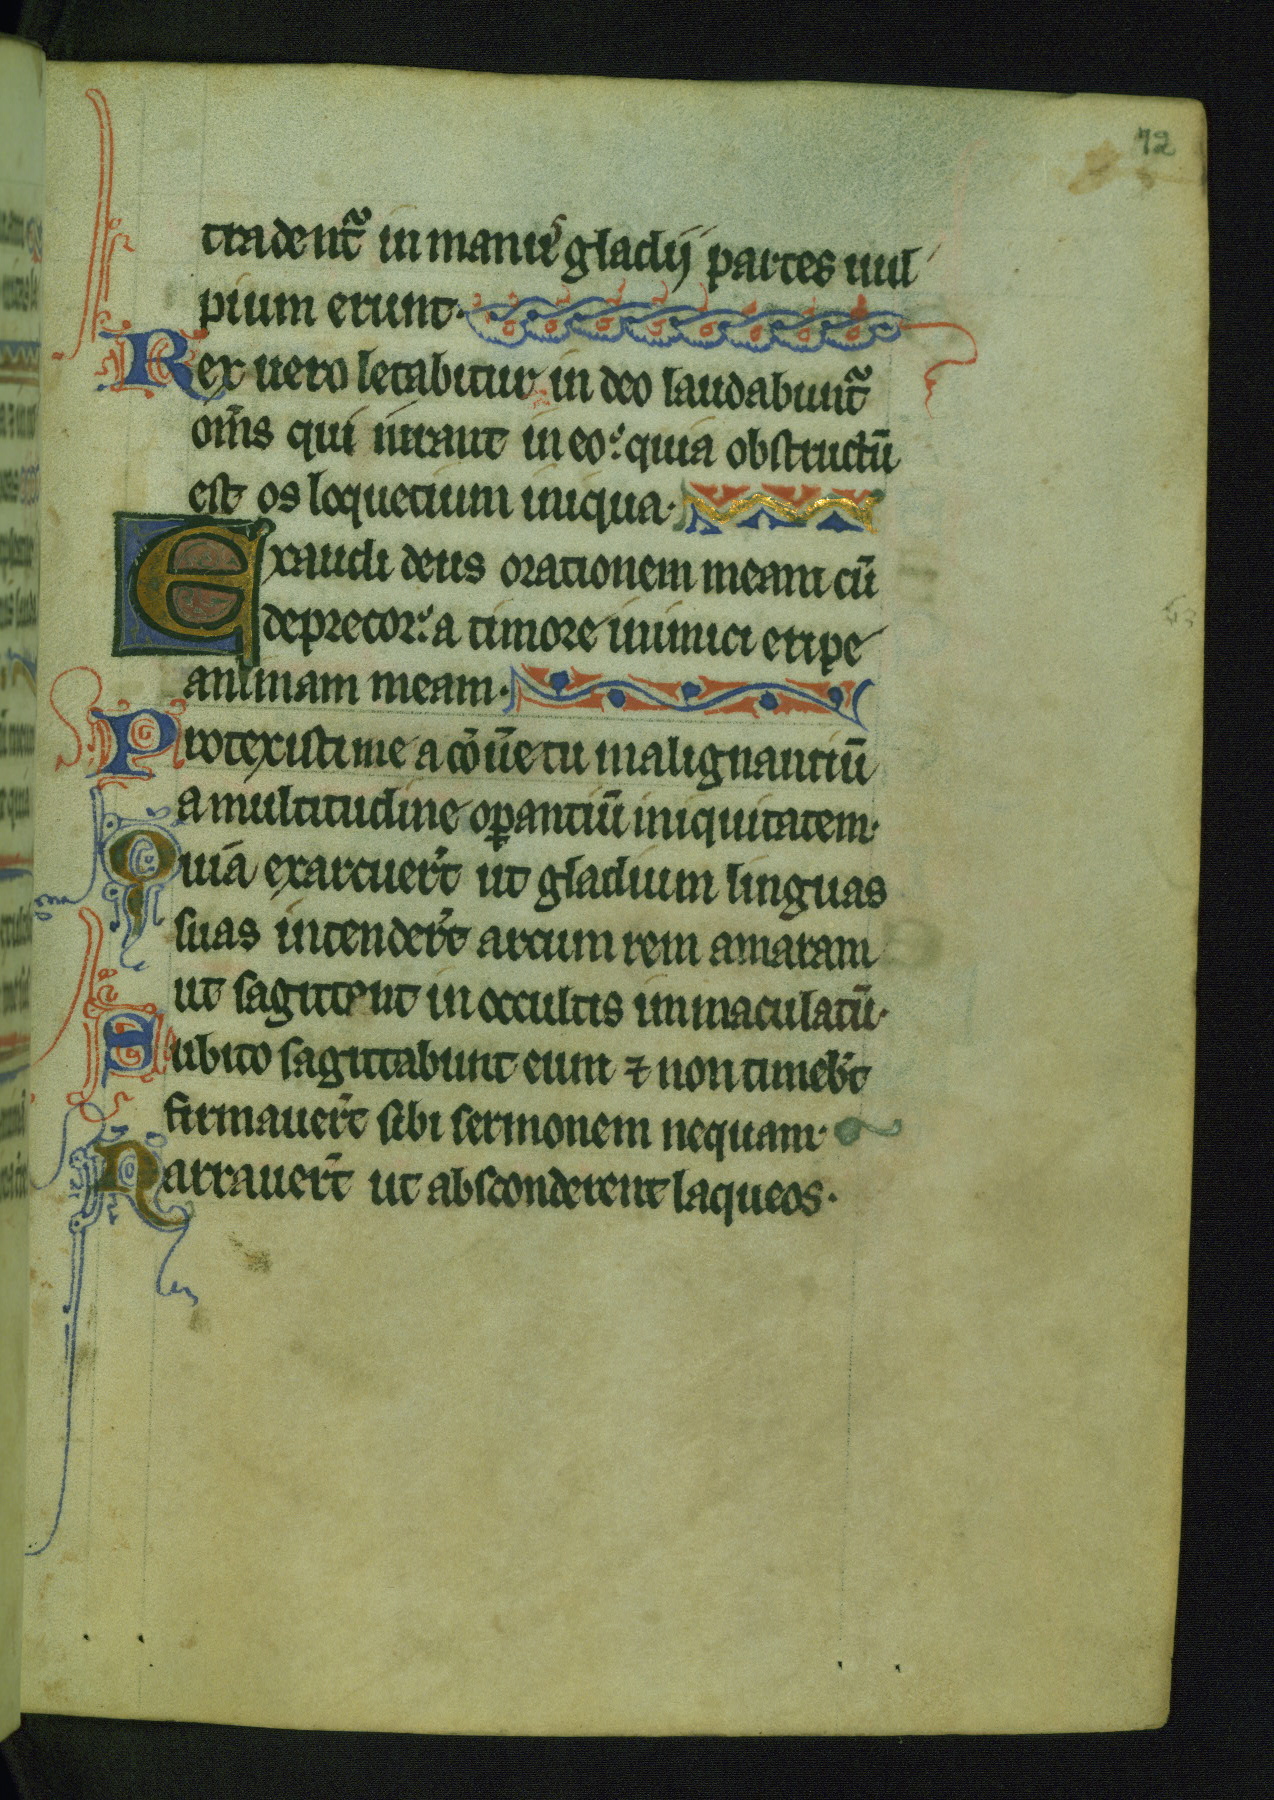 72
tradent᷑ in manus gladij partes uul
pium erunt·
Rex uero letabitur in deo laudabunt᷑
om̄s qui iurant in eo: quia obstructū
est os loquetium iniqua·
Exaudi deus orationem meam cū
deprecor: a timore inimici eripe
animam meam·
Protexisti me a cōuētu malignantiū
a multitudine oꝑantiū iniquitatem·
Quia exacuer̄t ut gladium linguas
suas intender̄t arcum rem amaram
ut sagittent in occultis immaculatū·
Subito sagittabunt eum ⁊ non timeb̄t
firmauer̄t sibi sermonem nequam·
Narrauer̄t ut absconderent laqueos·